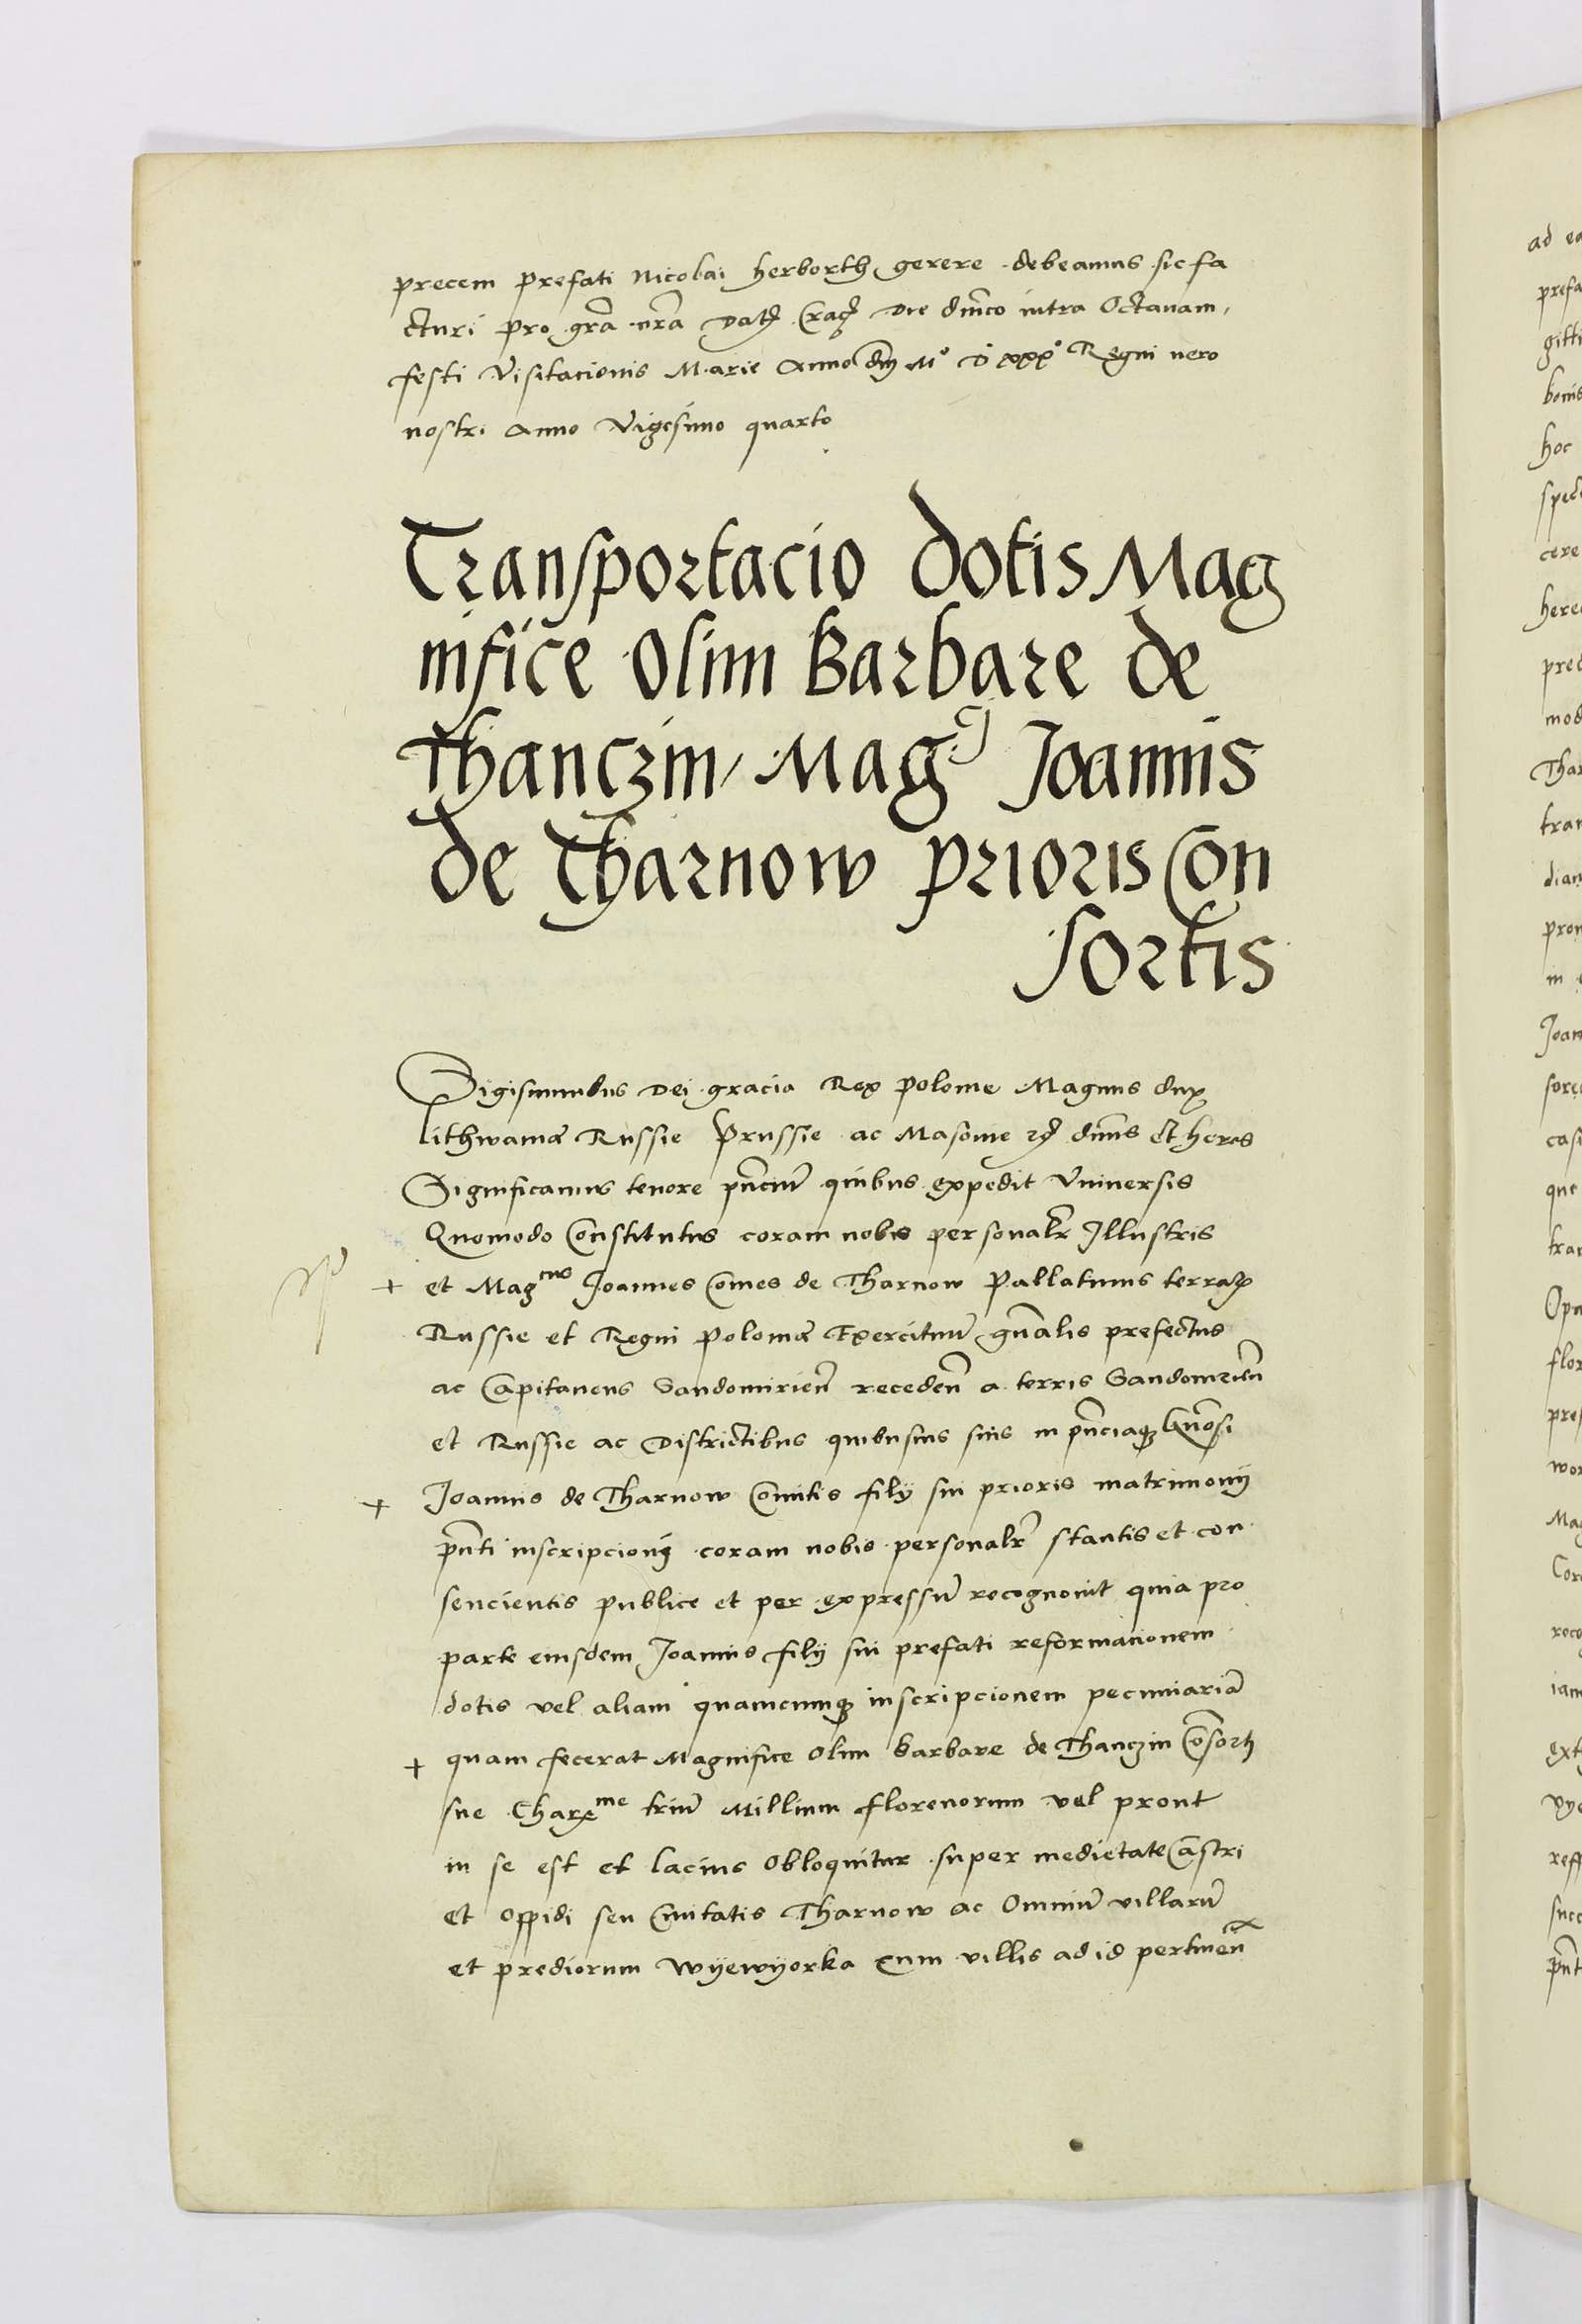 precem prefati Nicolai herborth gerere debeamus sic fa
cturi pro gra nra Dat Crac Die dnico intra Octauam,
festi Visitacionis Marie Anno dnj M° D xxx° Regni vero
nostri Anno Vigesimo quarto
Transportacio dotis Mag
nifice Olim Barbare de
Thanczin, Magcj Joannis
de Tharnow prioris Con
sortis
Sigismundus Dei gracia Rex Polonie Magnus dux
Lithwanie Russie Prussie ac Masouie dnus et heres
Significamus tenore pnciu quibus expedit Vniuersis
Quomodo Constitutus coram nobis personalr Illustris
et Magcus Joannes Comes de Tharnow Pallatinus terrarum
Russie et Regni Polonie Exercituu gnalis prefectus
ac Capitaneus Sandomirien receden a terris Sandomirien
et Russie ac Districtibus quibusuis suis in pnciaque Gnosi
Joannis de Tharnow Comitis filij sui prioris matrimonij
pnti inscripcionj coram nobis personalr stantis et con
sencientis publice et per expressu recognouit quia pro
parte eiusdem Joannis filij sui prefati reformacionem
dotis vel aliam quamcumque inscripcionem pecuniaria
quam fecerat Magnifice Olim Barbare de Thanczin Consorti
sue Charme triu Millium florenorum vel prout
in se est et lacius Obloquitur super medietate Castri
et Oppidi seu Ciuitatis Tharnow ac Omniu villaru
et prediorum Wyewyorka cum villis ad id pertinen